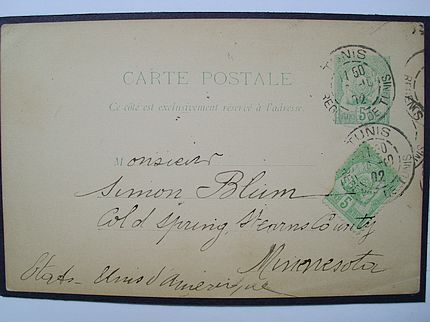 TUNIS
CARTE POSTALE
Ce côté est exclusivement réservé à l'adresse.
5
TUNIS
Monsieur
Simon Blum
Cold Spring, Stearns County
5
Minnesota
Etats-Unis d'Amérique